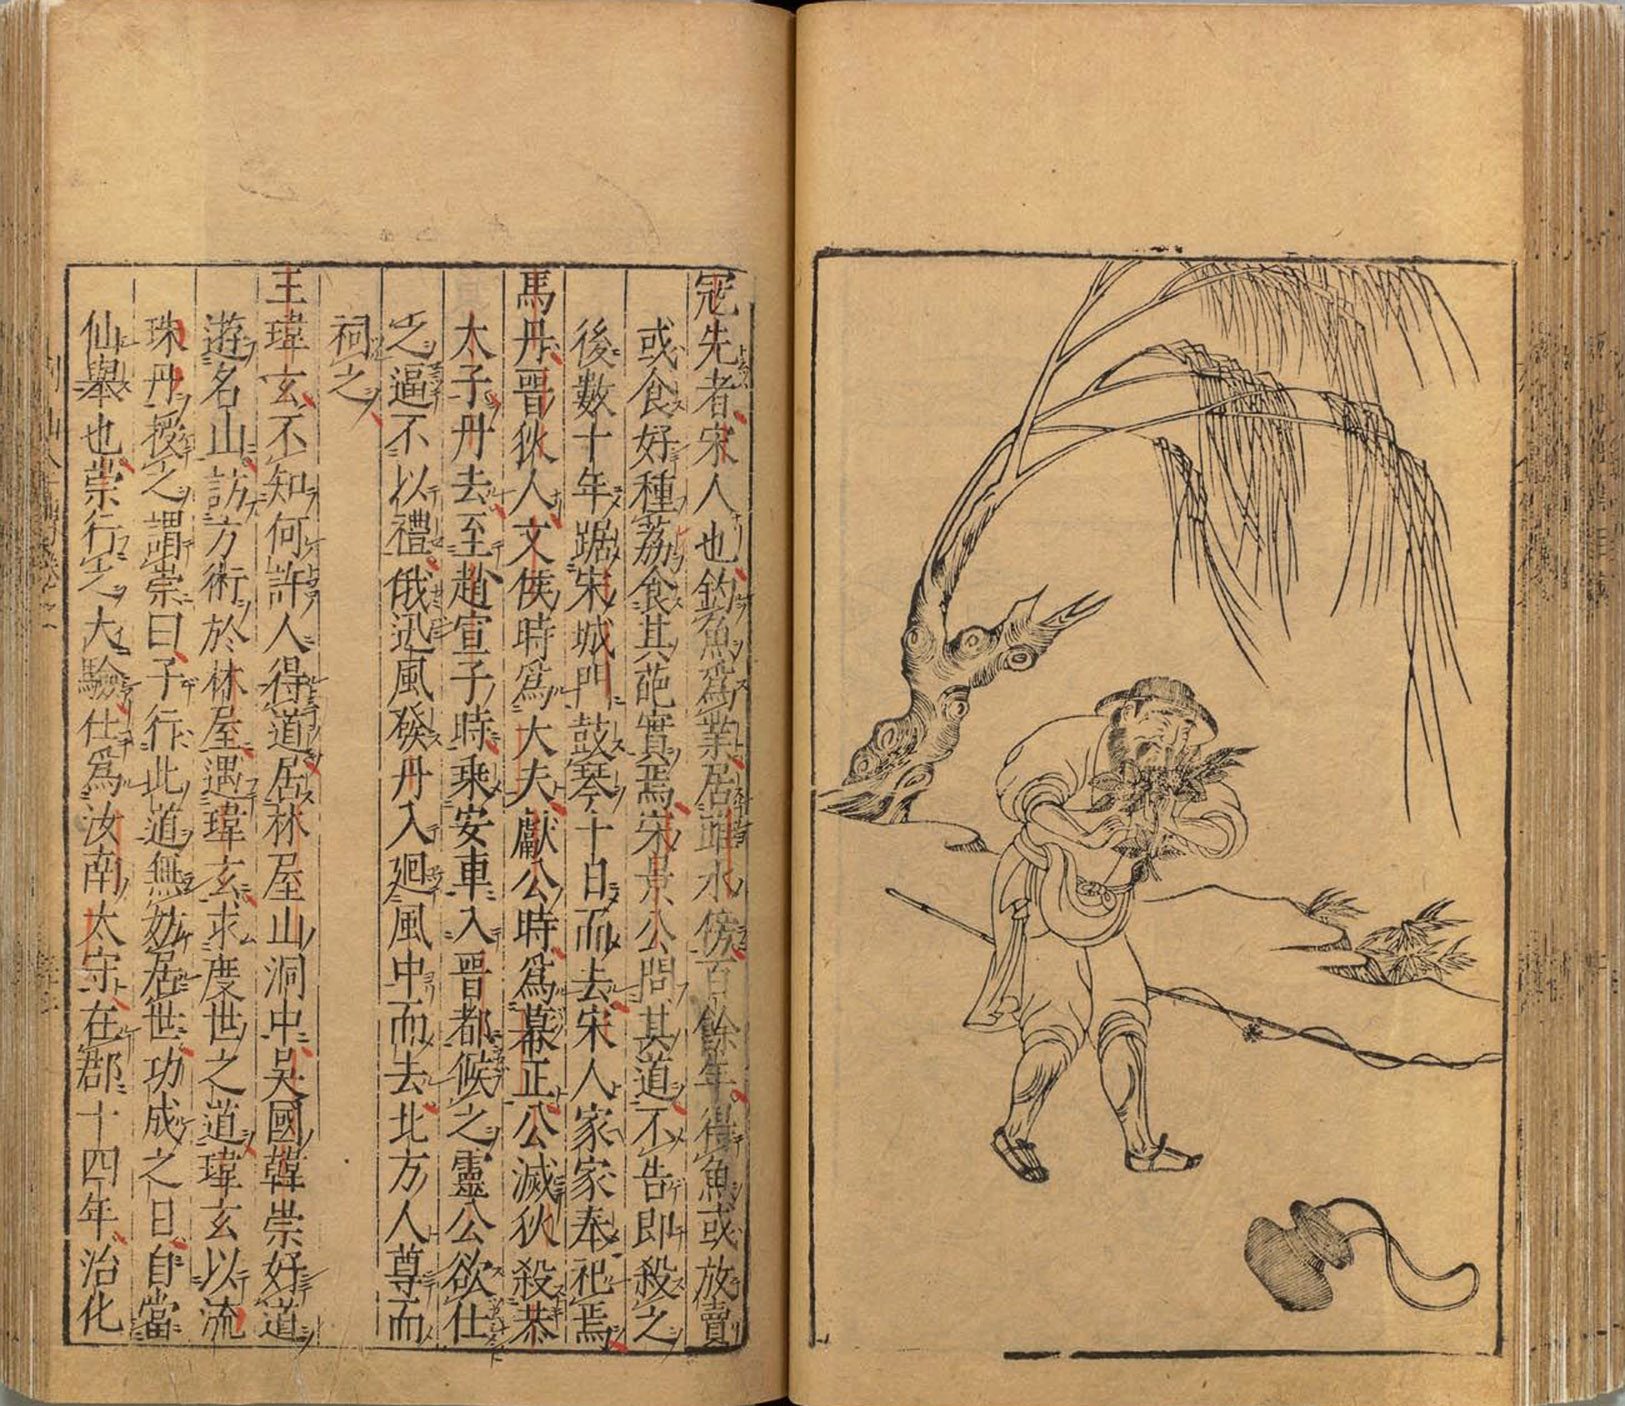 冦先者宋人也釣魚爲業居睢水傍百餘年得魚或放賣
或食好種荔食其葩實焉宋景公問其道不告即殺之
後數十年踞宋城門鼓琴十日而去宋人家家奉祀焉
馬丹晋狄人文侯時爲大夫獻公時爲幕正公滅狄殺恭
太子丹去至趙宣子時乘安車入晋都候之靈公欲仕
之逼不以禮俄迅風發丹入迴風中而去北方人尊而
祠之
王瑋玄不知何許人得道居林屋山洞中吳國韓崇好道
遊名山訪方術於林屋遇瑋玄求度世之道瑋玄以流
珠丹授之謂崇曰子行此道無妨居世功成之日自當
仙舉也崇行之大驗仕爲汝南太守在郡十四年治化